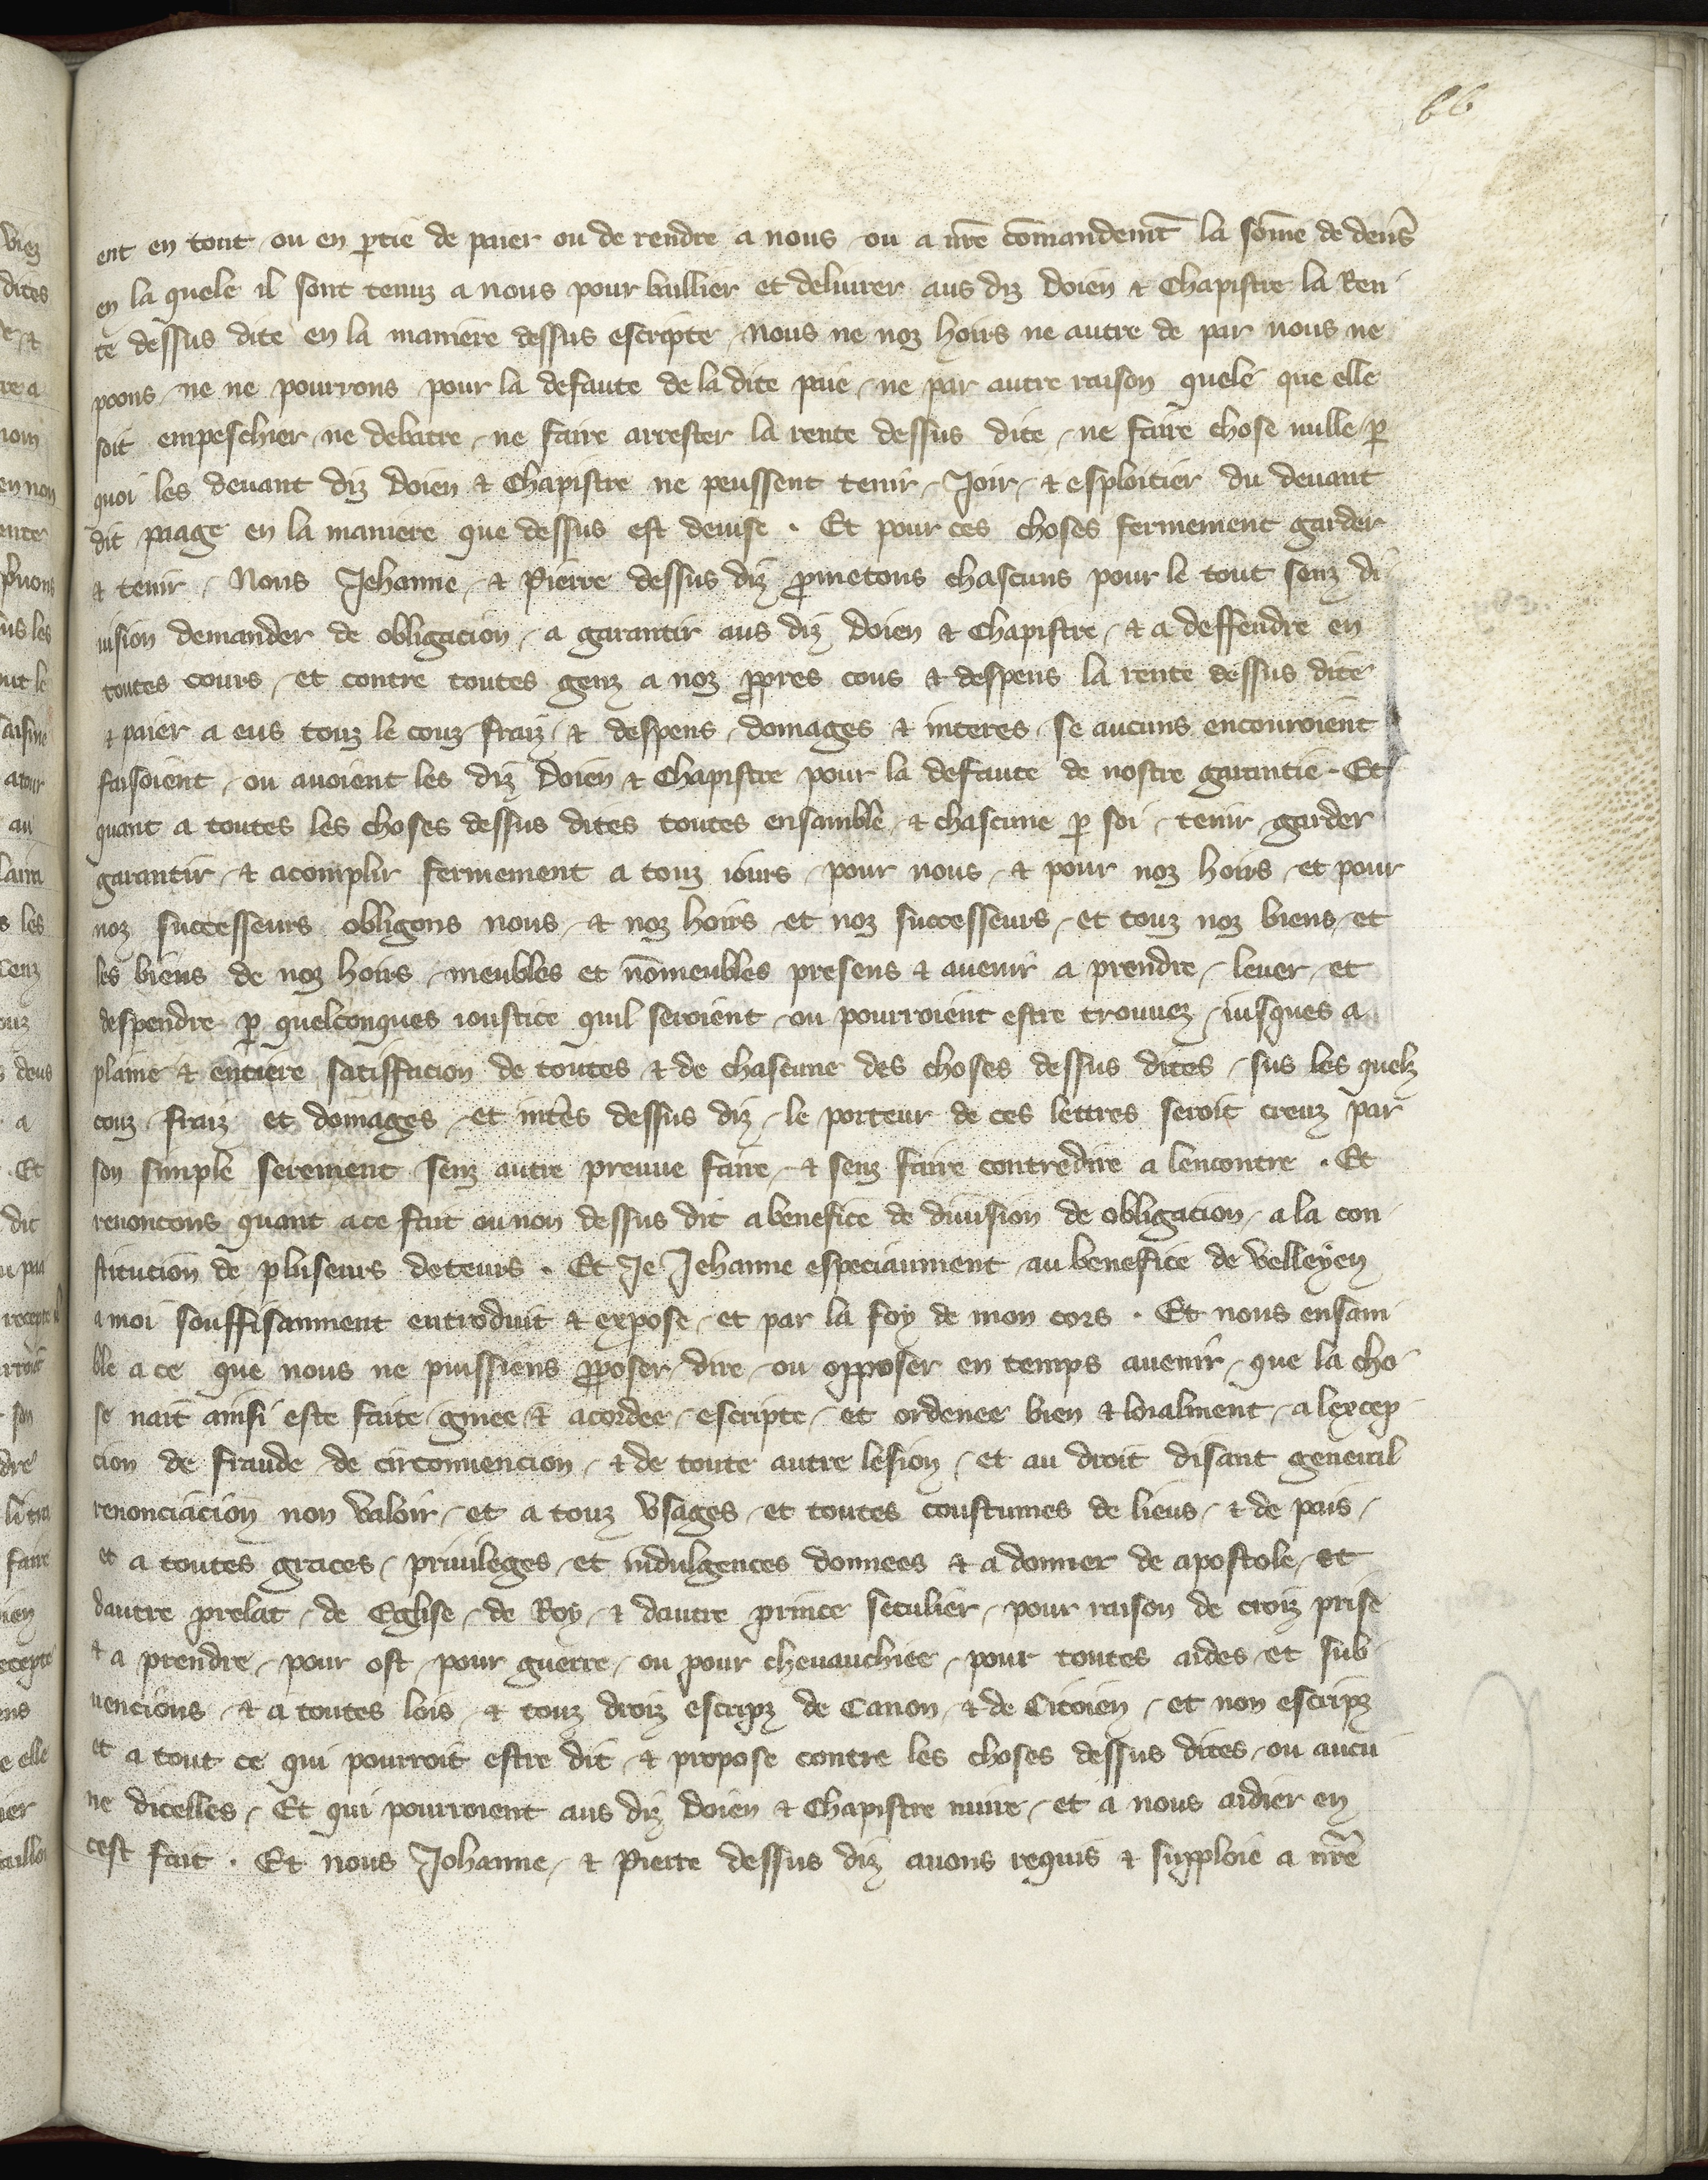 66
ent en tout ou en ꝑtie de paier ou de rendre a nous ou a nr̄e cōmandemt̄ la sōme de denr̄s
en la quele il sont tenuz a nous pour baillier et deliurer aus diz doien ⁊ Chapistre la Ren
te dessus dite en la maniere dessus escripte / Nous ne noz hoirs ne autre de par nous ne
poons / ne ne pourrons pour la defaute de la dite paie / ne par autre raison quele que elle
soit empeschier / ne debatre / ne faire arrester la rente dessus dite / ne faire chose nulle / ꝑ
quoi les deuant diz doien ⁊ Chapistre ne peussent tenir / Joir / ⁊ esploitier du deuant
dit paage en la maniere que dessus est deuise . Et pour ces choses fermement garder
⁊ tenir / Nous Jehanne / ⁊ Pierre dessus diz ꝓmetons chascuns pour le tout senz di
uision demander de obligacion / a garantir aus diz doien ⁊ Chapistre / ⁊ a deffendre en
toutes cours / et contre toutes genz a noz ꝓpres cous ⁊ despens la rente dessus dite
⁊ paier a eus touz le couz fraiz / ⁊ despens / domages ⁊ interes / se aucuns encouroient
faisoient / ou auoient les diz doien ⁊ Chapistre pour la defaute de nostre garantie . Et
quant a toutes les choses dessus dites toutes ensamble / ⁊ chascune ꝑ soi / tenir garder
garantir / ⁊ acomplir fermement a touz iours / pour nous / ⁊ pour noz hoirs / et pour
noz successeurs obligons nous / ⁊ noz hoirs et noz successeurs / et touz noz biens / et
les biens de noz hoirs / meubles et nōmeubles presens ⁊ auenir a prendre / leuer / et
despendre ꝑ quelconques ioustice quil seroient / ou pourroient estre trouuez / iusques a
plaine ⁊ entiere satiffacion de toutes ⁊ de chascune des choses dessus dites / sus les quelz
couz / fraiz et domages / et intēs dessus diz / le porteur de ces lettres seroit creuz par
son simple serement senz autre preuue faire / ⁊ senz faire contredire a lencontre . Et
renoncons quant a ce fait ou non dessus dit a benefice de diuision de obligacion / a la con
stitucion de pluseurs deteurs . Et Je Jehanne especiaument au benefice de velleyen
a moi souffisanment entroduit ⁊ expose / et par la foy de mon cors . Et nous ensam
ble a ce que nous ne puissiens ꝓposer / dire / ou opposer en temps auenir / que la cho
se nait ainsi este faite / gmee ⁊ acordee / escripte / et ordenee bien ⁊ loialment / a lexcep
cion de fraude / de circonuencion / ⁊ de toute autre lesion / et au droit disant general
renonciacion non valoir / et a touz vsages / et toutes coustumes de lieus / ⁊ de pais /
et a toutes graces / priuileges / et indulgences donnees ⁊ a donner de apostole / et
dautre prelat / de Eglise / de Roy / ⁊ dautre prince seculier / pour raison de croiz prise
⁊ a prendre / pour ost / pour guerre / ou pour cheuauchiee / pour toutes aides / et sub
uencions / ⁊ a toutes lois / ⁊ touz droiz escripz de Canon / ⁊ de Citoien / et non escripz
et a tout ce qui pourroit estre dit / ⁊ propose contre les choses dessus dites / ou aucu
ne dicelles / Et qui pourroient aus diz doien ⁊ Chapistre nuire / et a nous aidier en
cest fait . Et nous Johanne / ⁊ Pierre dessus diz auons requis ⁊ supploie a nr̄e